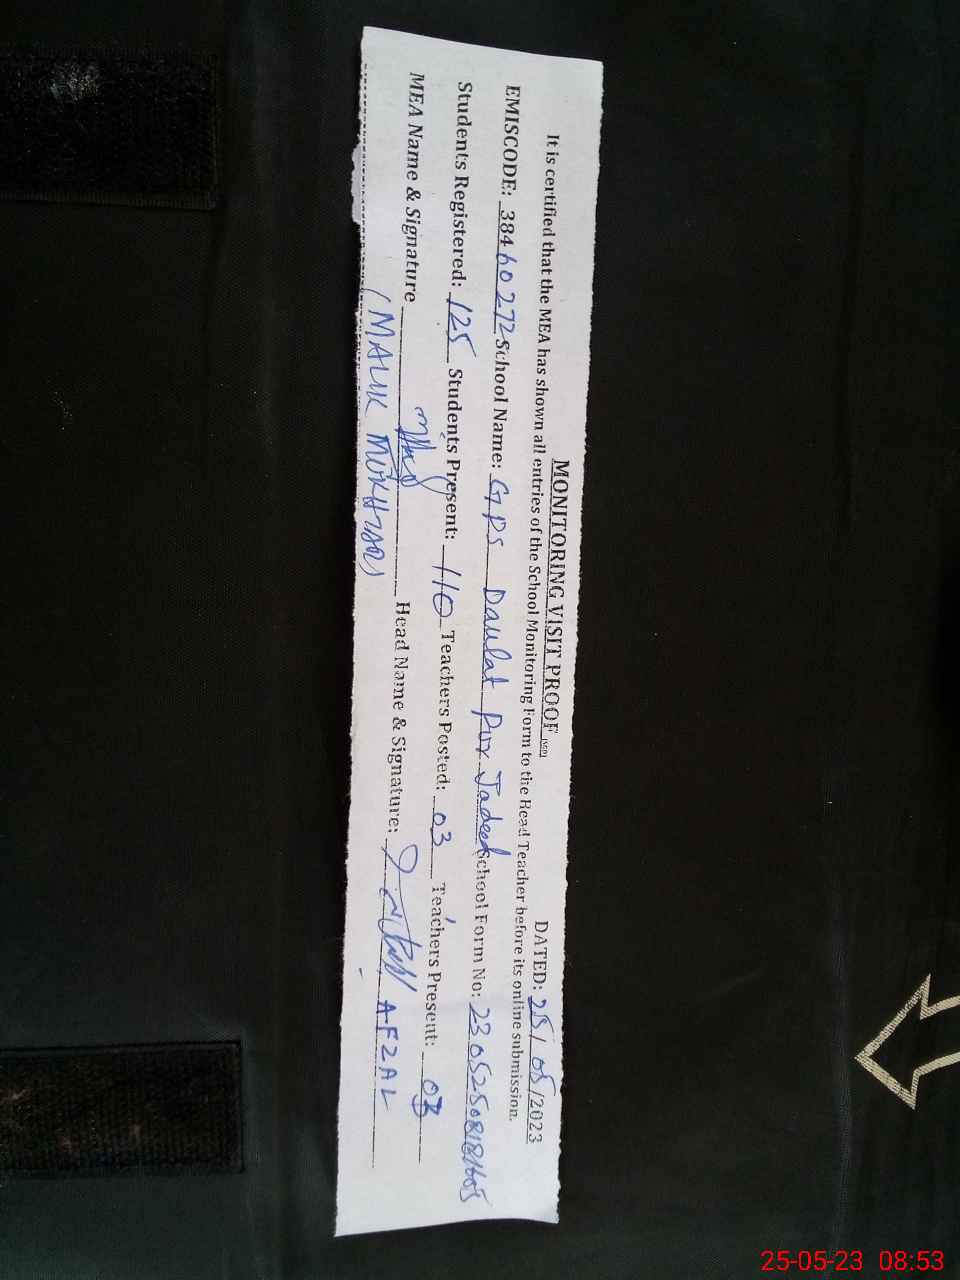 MONITORING VISIT PROOF
DATED: 25/05/2023
It is certified that the MEA has shown all entries of the School Monitoring Form to the Head Teacher before its online submission.
EMISCODE: 38460272 School Name: GPS Daulat Pur Jadeed School Form No:
Students Registered: 125 Students Present: 110 Teachers Posted: 03 Teachers Present: 03
MEA Name & Signature Head Name & Signature: AFZAL
(MALIK
25-05-23 08:53